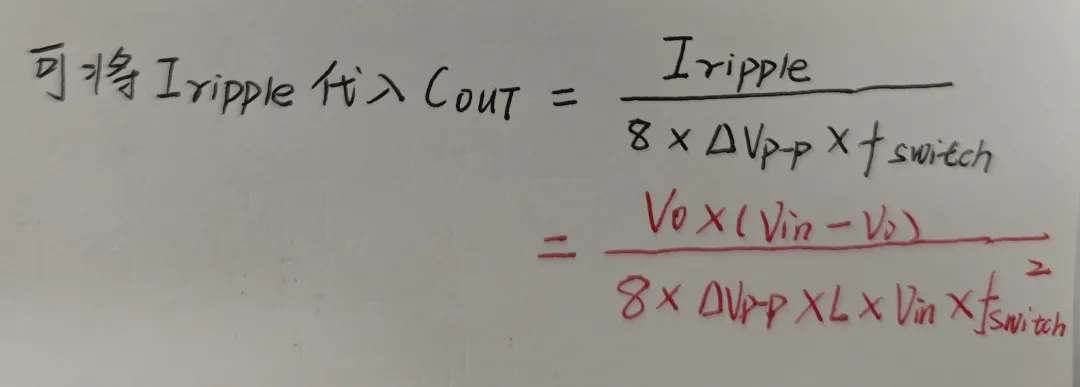 可将 Iripple 代入 COUT = Iripple / 8 × ΔVp-p × fswitch
= Vo × (Vin - Vo) / 8 × ΔVp-p × L × Vin × f²switch